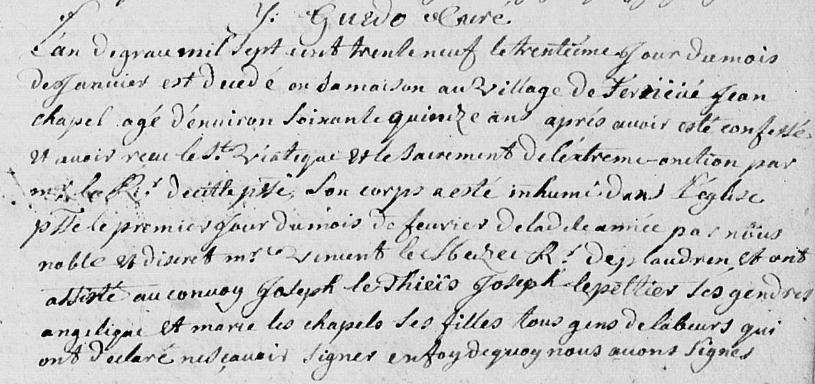 Y: Guedo Curé
L'an de grace mil sept cent trente neuf le trentieme Jour du mois
de Janvier est decedé en sa maison au village de Jean
chapel agé d'environ soixante quinze ans aprés avoir esté confessé
et avoir receu le St. Viatique et le sacrement de l'extreme-onction par
mr. le Rr. de cette psse, son corps a esté inhumé dans l'église
psse le premier Jour du mois de fevrier de la dite année par nous
noble et discret mre Vincent le Rr. de plaudren et ont
assisté au convoy Joseph le Thieis Joseph le pettier ses gendres
angelique et marie les chapels ses filles tous gens de labeurs qui
ont declaré ne sçavoir signer en foy de quoy nous avons signés